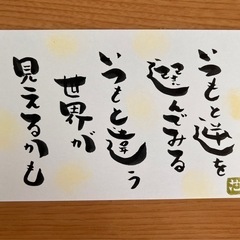 いつもと逆を
選んでみる
いつもと違う
世界が
見えるかも